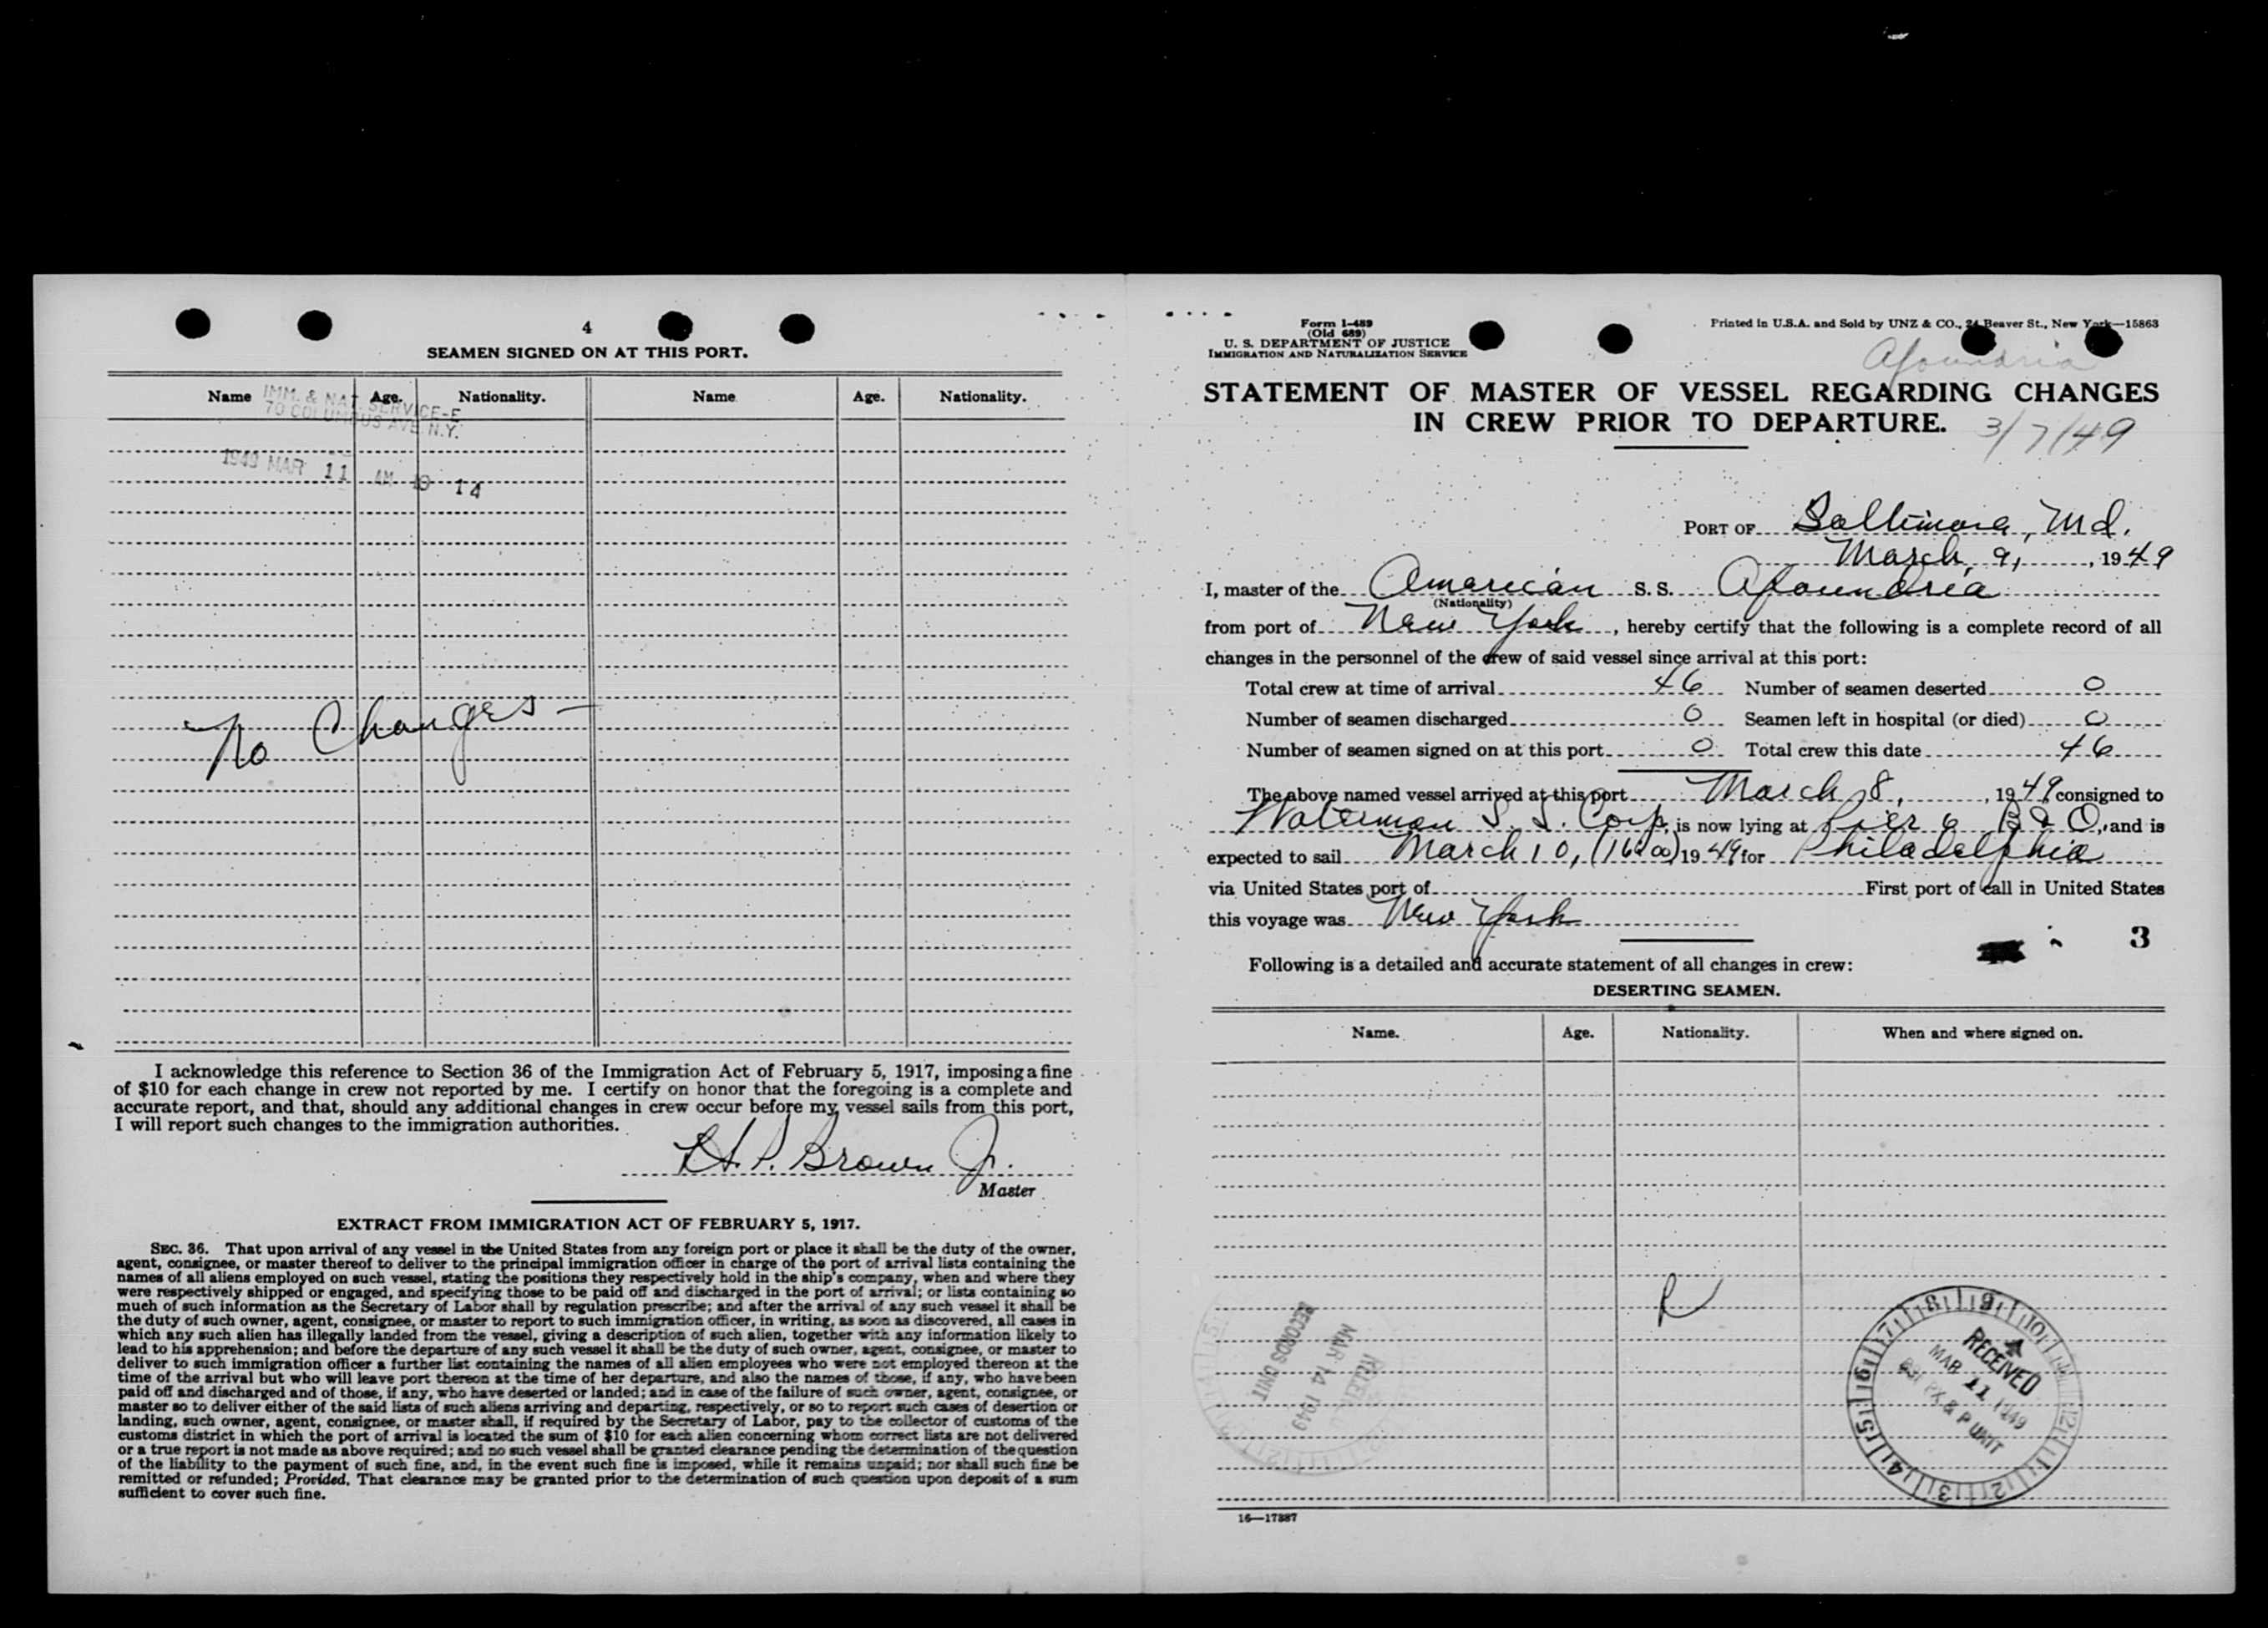 4
SEAMEN SIGNED ON AT THIS PORT.
Name Age. Nationality. Name Age. Nationality.
IMM. & NAT SERVICE-E
70 COLUMBUS AVE N.Y.
1949 MAR 11 AM 10 14
No Changes —
I acknowledge this reference to Section 36 of the Immigration Act of February 5, 1917, imposing a fine
of $10 for each change in crew not reported by me. I certify on honor that the foregoing is a complete and
accurate report, and that, should any additional changes in crew occur before my vessel sails from this port,
I will report such changes to the immigration authorities.
Brown Jr.
Master
EXTRACT FROM IMMIGRATION ACT OF FEBRUARY 5, 1917.
SEC. 36. That upon arrival of any vessel in the United States from any foreign port or place it shall be the duty of the owner,
agent, consignee, or master thereof to deliver to the principal immigration officer in charge of the port of arrival lists containing the
names of all aliens employed on such vessel, stating the positions they respectively hold in the ship's company, when and where they
were respectively shipped or engaged, and specifying those to be paid off and discharged in the port of arrival; or lists containing so
much of such information as the Secretary of Labor shall by regulation prescribe; and after the arrival of any such vessel it shall be
the duty of such owner, agent, consignee, or master to report to such immigration officer, in writing, as soon as discovered, all cases in
which any such alien has illegally landed from the vessel, giving a description of such alien, together with any information likely to
lead to his apprehension; and before the departure of any such vessel it shall be the duty of such owner, agent, consignee, or master to
deliver to such immigration officer a further list containing the names of all alien employees who were not employed thereon at the
time of the arrival but who will leave port thereon at the time of her departure, and also the names of those, if any, who have been
paid off and discharged and of those, if any, who have deserted or landed; and in case of the failure of such owner, agent, consignee, or
master so to deliver either of the said lists of such aliens arriving and departing, respectively, or so to report such cases of desertion or
landing, such owner, agent, consignee, or master shall, if required by the Secretary of Labor, pay to the collector of customs of the
customs district in which the port of arrival is located the sum of $10 for each alien concerning whom correct lists are not delivered
or a true report is not made as above required; and no such vessel shall be granted clearance pending the determination of the question
of the liability to the payment of such fine, and, in the event such fine is imposed, while it remains unpaid; nor shall such fine be
remitted or refunded; Provided, That clearance may be granted prior to the determination of such question upon deposit of a sum
sufficient to cover such fine.
Form I-489
(Old 689)
U. S. DEPARTMENT OF JUSTICE
IMMIGRATION AND NATURALIZATION SERVICE
Printed in U.S.A. and Sold by UNZ & CO., 24 Beaver St., New York—15863
Afoundria
STATEMENT OF MASTER OF VESSEL REGARDING CHANGES
IN CREW PRIOR TO DEPARTURE.
3/7/49
PORT OF Baltimore, Md.
March 9, , 1949
I, master of the American S. S. Afoundria
(Nationality)
from port of New York, hereby certify that the following is a complete record of all
changes in the personnel of the crew of said vessel since arrival at this port:
Total crew at time of arrival 46 Number of seamen deserted 0
Number of seamen discharged 0 Seamen left in hospital (or died) 0
Number of seamen signed on at this port 0 Total crew this date 46
The above named vessel arrived at this port March 8, , 1949 consigned to
Waterman S. S. Corp, is now lying at Pier 6 B & O, and is
expected to sail March 10, (1600) 1949 for Philadelphia
via United States port of First port of call in United States
this voyage was New York
3
Following is a detailed and accurate statement of all changes in crew:
DESERTING SEAMEN.
Name. Age. Nationality. When and where signed on.
R
RECORDS UNIT
MAR 14 1949
RECEIVED
MAR 11 1949
& P UNIT
16—17887